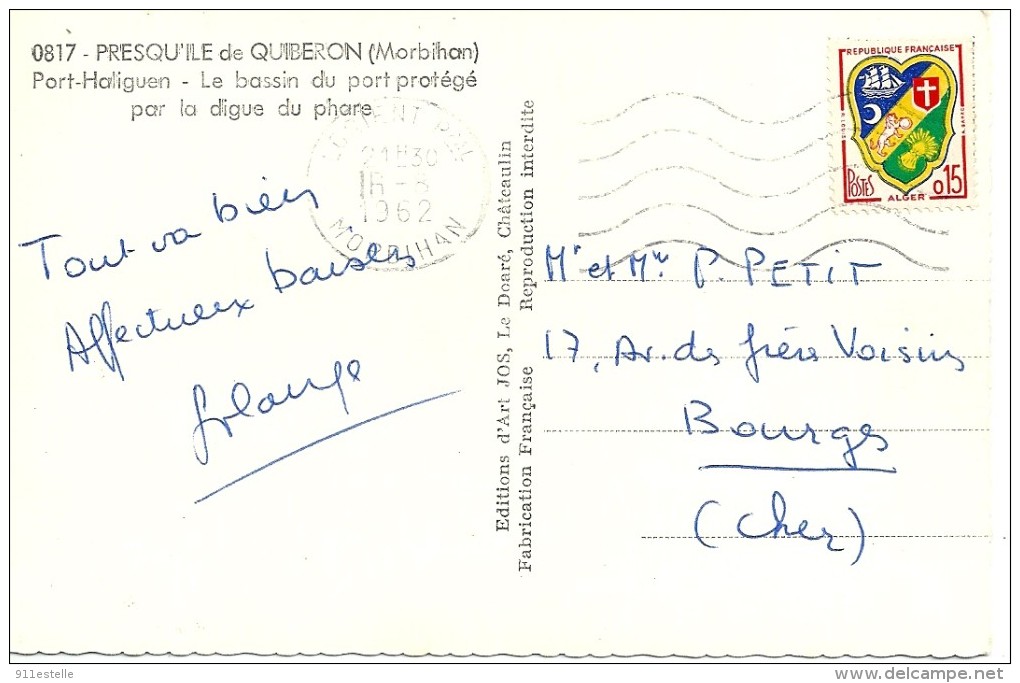 0817 - PRESQU'ILE de QUIBERON (Morbihan)
Port-Haliguen - Le bassin du port protégé
par la digue du phare
LORIENT
21H30
1962
MORBIHAN
Tout va bien
Affectueux baisers
Solange
Editions d'Art JOS, Le Doaré, Châteaulin
Fabrication Française Reproduction interdite
REPUBLIQUE FRANÇAISE
POSTES
0,15
ALGER
Mr et Mme P. PETIT
17, Av. des frères Voisins
Bourges
(Cher)
911estelle
delcampe.net